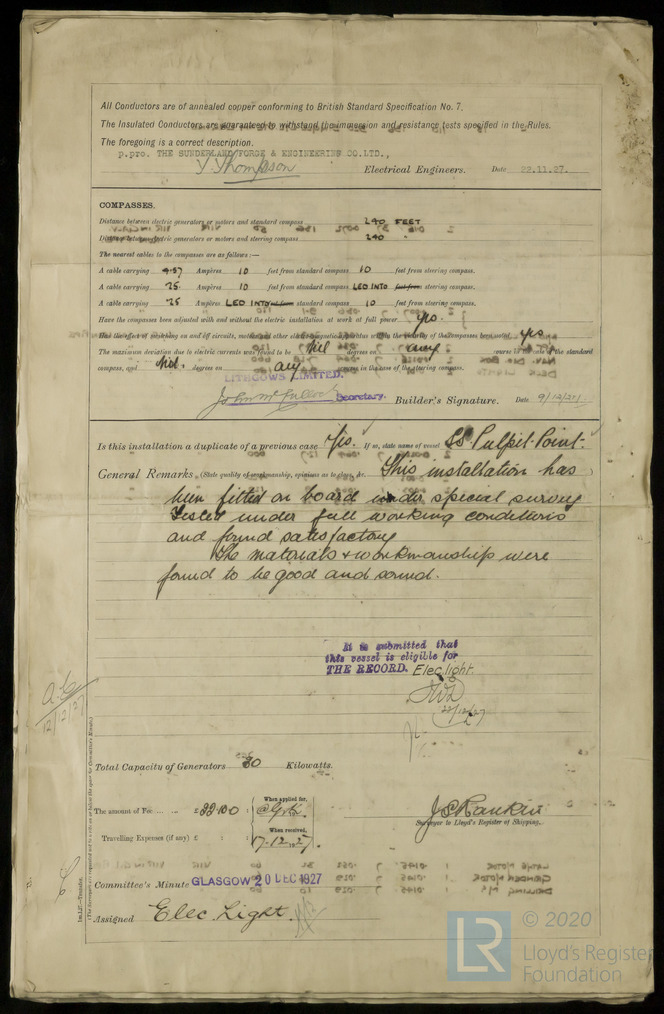 All Conductors are of annealed copper conforming to British Standard Specification No. 7.
The Insulated Conductors are guaranteed to withstand the immersion and resistance tests specified in the Rules.
The foregoing is a correct description.
p.pro. THE SUNDERLAND FORGE & ENGINEERING CO. LTD.,
Thompson Electrical Engineers. Date 22.11.27.
COMPASSES.
Distance between electric generators or motors and standard compass 240 FEET
Distance between electric generators or motors and steering compass 240 "
The nearest cables to the compasses are as follows:—
A cable carrying 4.57 Ampères 10 feet from standard compass 10 feet from steering compass.
A cable carrying .75 Ampères 10 feet from standard compass LED INTO feet from steering compass.
A cable carrying .75 Ampères LED INTO standard compass 10 feet from steering compass.
Have the compasses been adjusted with and without the electric installation at work at full power Yes.
Has the effect of switching on and off circuits, motors and other electro-magnetic apparatus within the vicinity of the compasses been noted yes
The maximum deviation due to electric currents was found to be Nil degrees on any course in the case of the standard
compass, and Nil. degrees on any course in the case of the steering compass.
LITHGOWS LIMITED.
John McCulloch Secretary. Builder's Signature. Date 9/12/27.
Is this installation a duplicate of a previous case Yes. If so, state name of vessel SS Pulpit Point.
General Remarks. (State quality of workmanship, opinions as to class, &c. This installation has
been fitted on board under special survey
Tested under full working conditions
and found satisfactory
The materials & workmanship were
found to be good and sound.
It is submitted that
this vessel is eligible for
THE RECORD. Elec light.
22/12/27
12/12/27
Total Capacity of Generators 30 Kilowatts.
The amount of Fee £22:10:0 When applied for,
When received,
Travelling Expenses (if any) £ : : 17.12.1927.
J S Rankin
Surveyor to Lloyd's Register of Shipping.
Committee's Minute GLASGOW 20 DEC 1927
Assigned Elec. Light.
LR © 2020
Lloyd's Register
Foundation